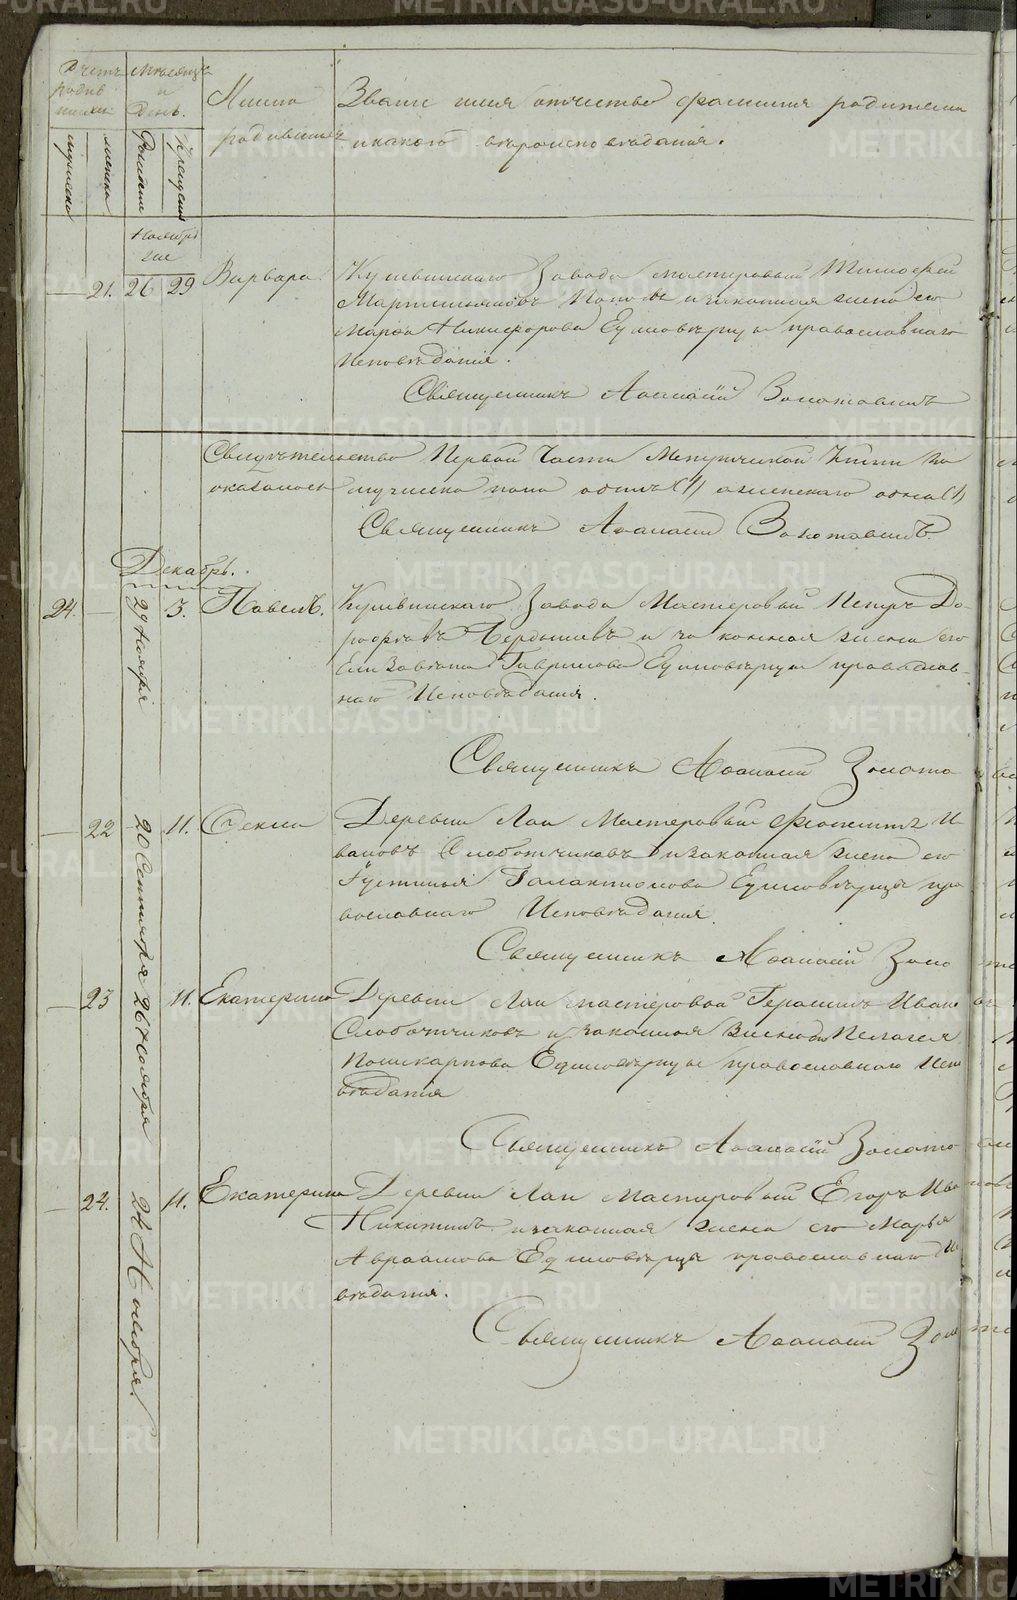 METRIKI.GASO-URAL.RU
Счетъ родив
шихся
Мѣсяцъ
и
День.
Имена
родившихся
Званіе имя отчество фамилия родителей
и какого вѣроисповѣданія.
мужеска
женска
Рожденіе
Крещеніе
Ноябрь
21. 26 29 Варвара
Кушвинскаго Завода мастеровый Тимофей
Мартемьяновъ Поповъ и законная жена его
Марфа Никифорова Единовѣрцы православнаго
Исповѣданія.
Священникъ Афанасій Золотавинъ
Свидѣтельство Первой Части Метрической Книги
оказалось мужеска пола женскаго
Священникъ Афанасій Золотавинъ.
Декабрь.
24. 29 Ноября 3. Павелъ.
Кушвинскаго Завода Мастеровый Петръ До-
рофѣевъ Бердышевъ и законная жена его
Елизавета Гаврилова Единовѣрцы православ-
наго Исповѣданія.
Священникъ Афанасій Золота
22 20 Сентября 11. Фекла
Деревни Лаи Мастеровый И
вановъ Слободчиковъ и законная жена его
Устинья Галактионова Единовѣрцы пра
вославнаго Исповѣданія.
Священникъ Афанасій Золо
23 26 Ноября 11. Екатерина
Деревни Лаи мастеровой Герасимъ Ивановъ
Слободчиковъ и законная жена его Пелагея
Поликарпова Единовѣрцы православнаго Испо
вѣданія
Священникъ Афанасій Золото
24. 24 Ноября 11. Екатерина
Деревни Лаи Мастеровый Егоръ Ива
Никитинъ и законная жена его Марья
Авраамова Единовѣрцы православнаго
вѣданія.
Священникъ Афанасій Золо